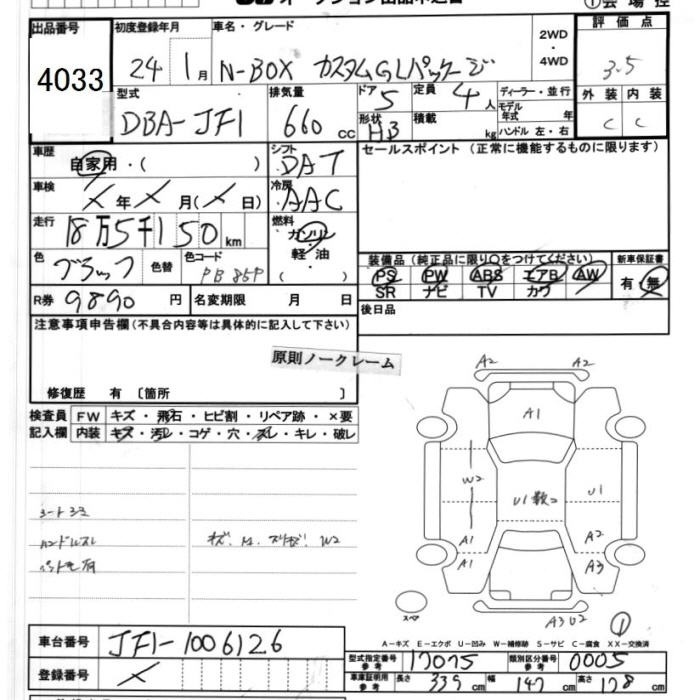 出品番号 4033
初度登録年月 24年 1月
車名・グレード N-BOX カスタムGLパッケージ
2WD・4WD
評価点 3.5
外装 C 内装 C
型式 DBA-JF1
排気量 660 cc
ドア 5 形状 HB
定員 4人 積載 kg
ディーラー・並行
モデル年式 年
ハンドル 左・右
車歴 自家用・( )
シフト DAT
セールスポイント(正常に機能するものに限ります)
車検 ×年×月(×日)
冷房 AAC
走行 18万5千150 km
燃料 ガソリン・軽油 ( )
色 ブラック 色替 色コード PB85P
装備品(純正品に限り○をつけてください) 新車保証書
PS PW ABS エアB AW 有・無
SR ナビ TV カワ
R券 9890円 名変期限 月 日
後日品
注意事項申告欄(不具合内容等は具体的に記入して下さい)
原則ノークレーム
修復歴 有 〔箇所 〕
検査員記入欄
FW キズ・飛石・ヒビ割・リペア跡・×要
内装 キズ・汚れ・コゲ・穴・スレ・キレ・破レ
ハンドルスレ
A2 A2
A1
W2 U1数コ U1
A1 A2
A1 A3
スペア A3 U2
①
A-キズ E-エクボ U-凹み W-補修跡 S-サビ C-腐食 XX-交換済
車台番号 JF1-1006126
登録番号 ×
型式指定番号参考 17075 類別区分番号参考 0005
車庫証明用参考 長さ 339cm 幅 147cm 高さ 178cm